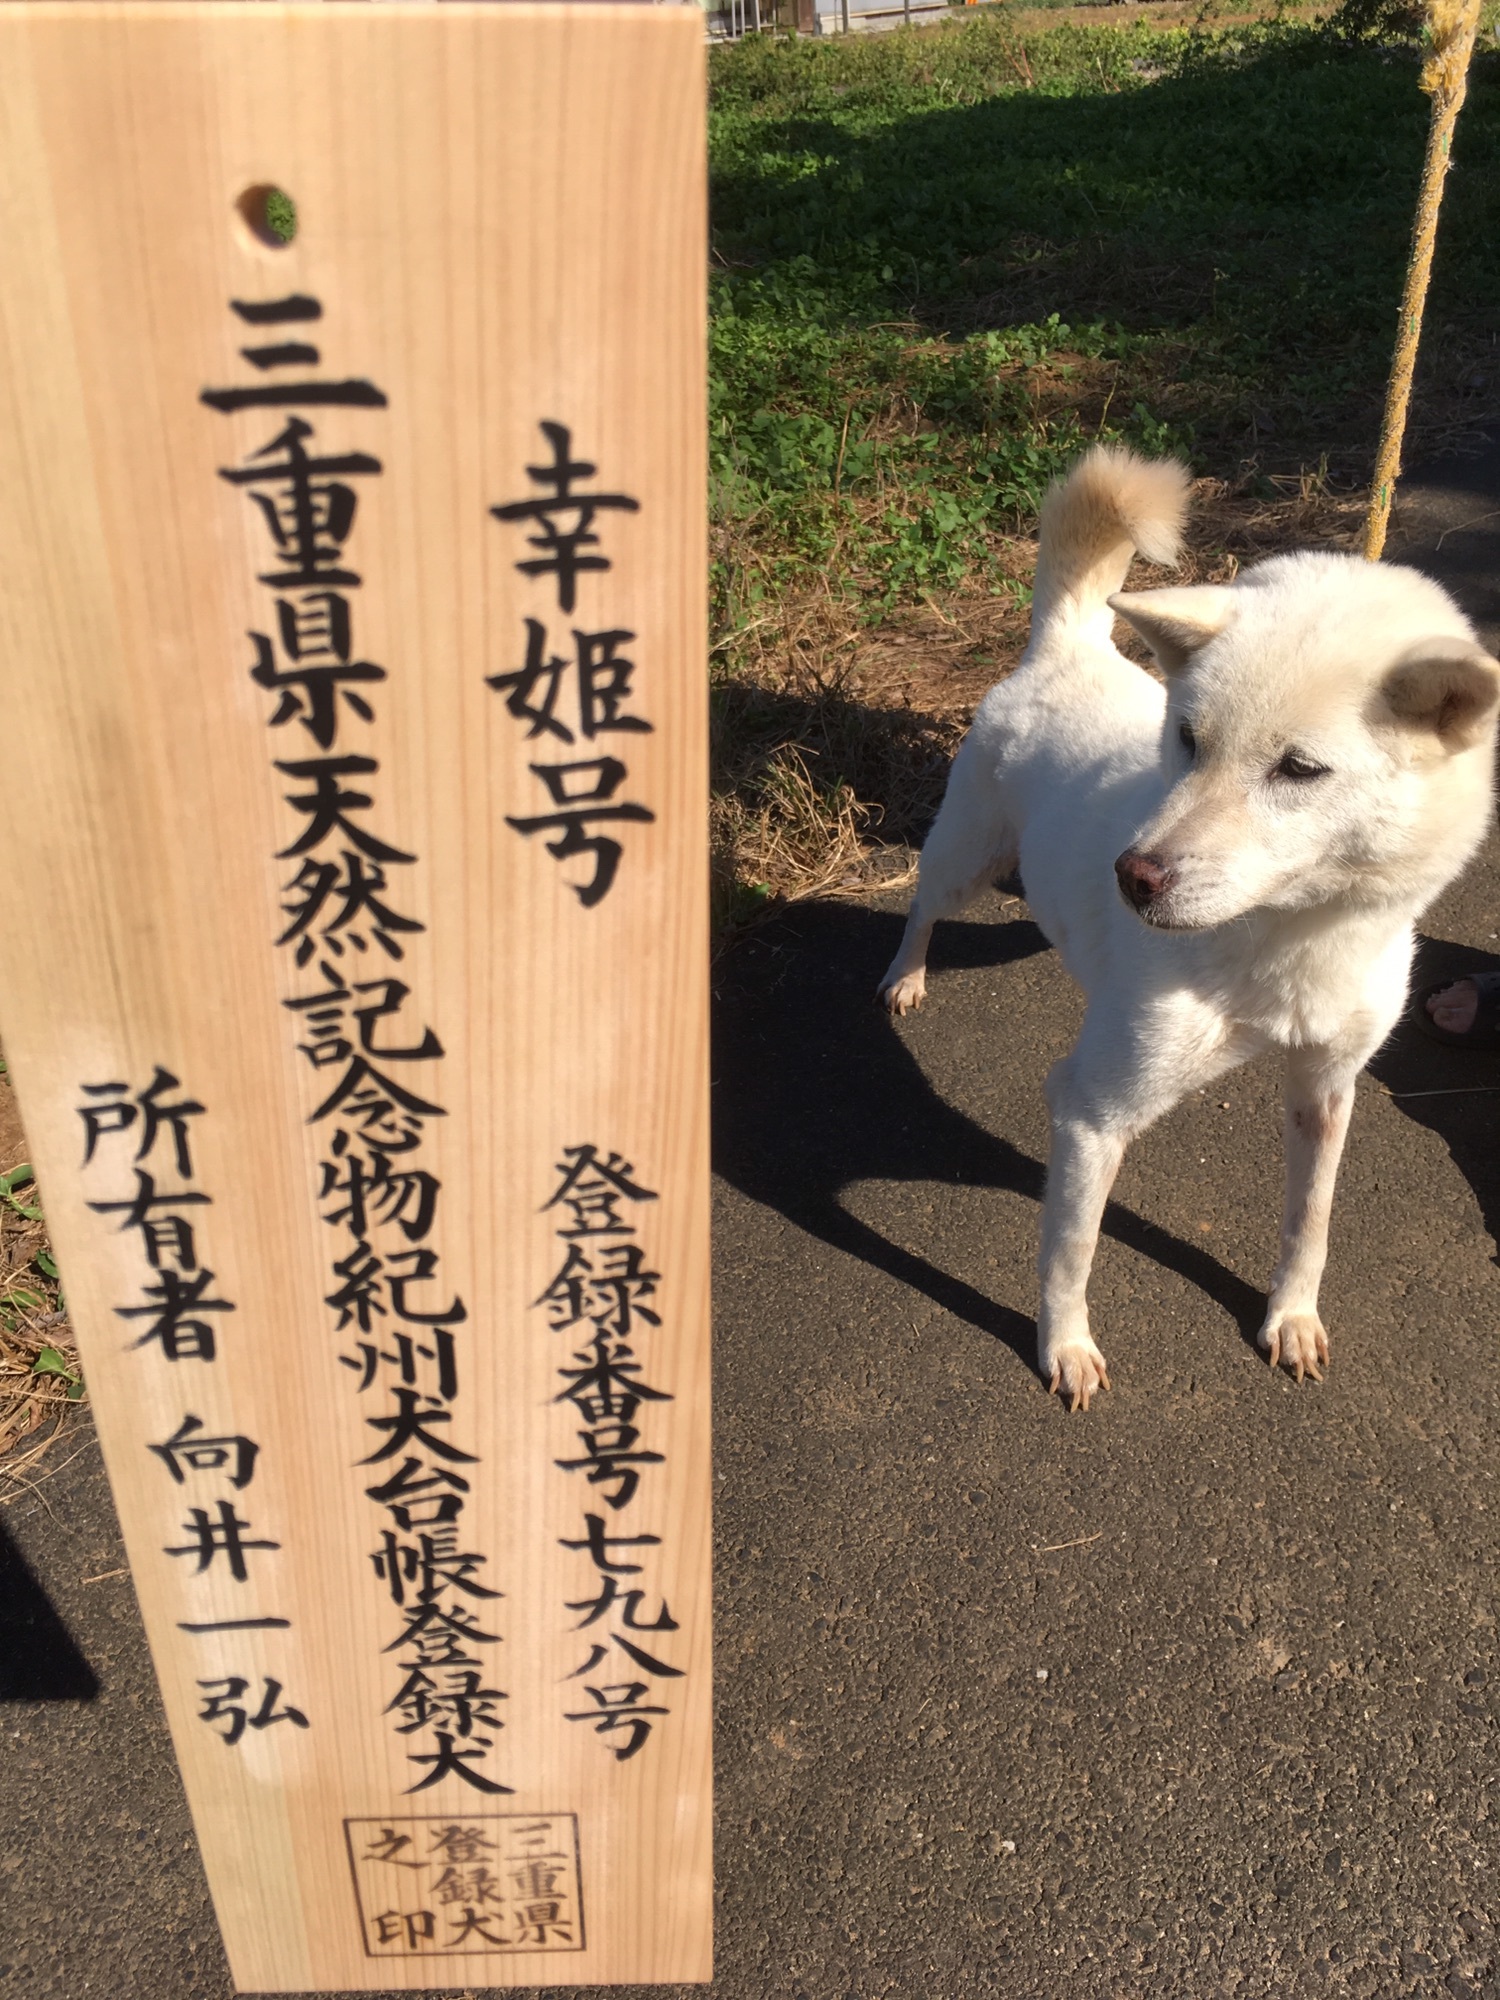 幸姫号 登録番号七九八号
三重県天然記念物紀州犬台帳登録犬
所有者 向井一弘
三重県
登録犬
之印